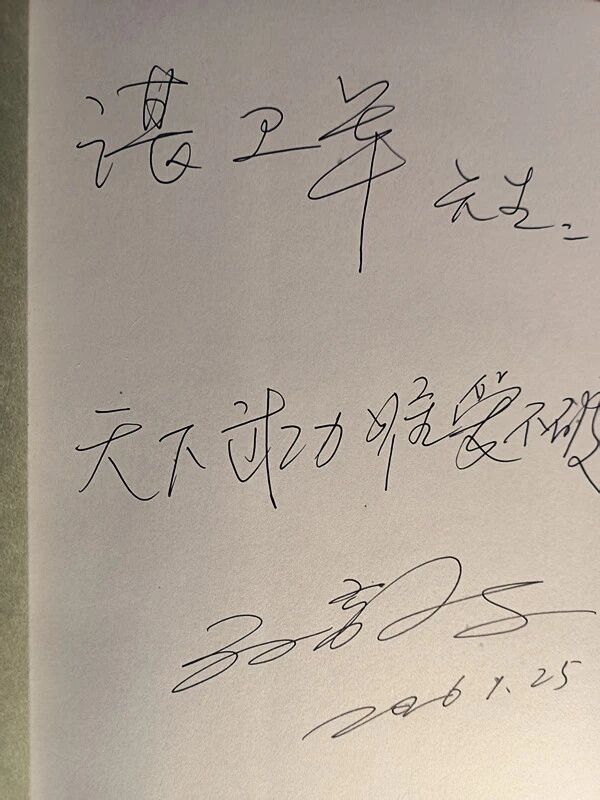 谌卫军 先生:
天下武功 唯爱不破
2026 1.25